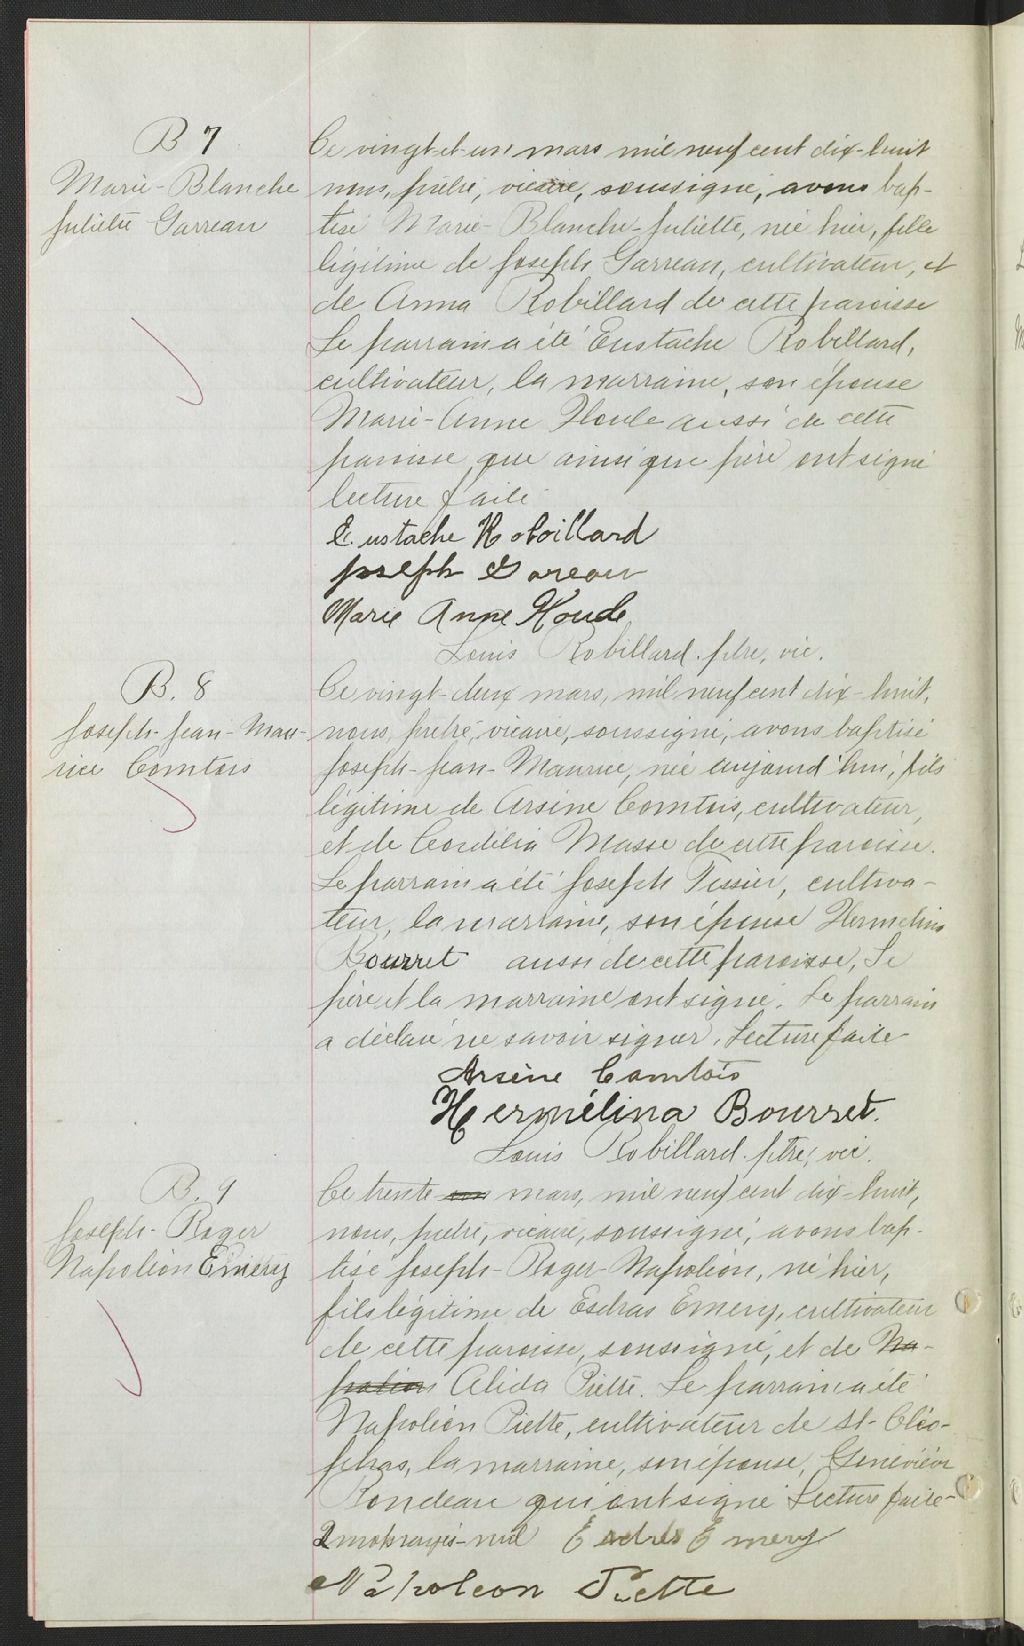 B 7
Marie-Blanche
Juliette Garreau
Ce vingt-et-un mars mil neuf cent dix-huit
nous, prêtre, vicaire, soussigné, avons bap-
tisé Marie-Blanche-Juliette, née hier, fille
légitime de Joseph Garreau, cultivateur, et
de Anna Robillard de cette paroisse
Le parrain a été Eustache Robillard,
cultivateur, la marraine, son épouse
Marie-Anne Houle aussi de cette
paroisse, que ainsi que père ont signé
lecture faite
Eustache Robillard
Joseph Gareau
Marie Anne Houde
Louis Robillard. ptre, vic.
B. 8
Joseph-Jean-Mau-
rice Comtois
Ce vingt-deux mars, mil neuf cent dix-huit,
nous, prêtre, vicaire, soussigné, avons baptisé
Joseph-Jean-Maurice, né aujourd'hui, fils
légitime de Arsène Comtois, cultivateur,
et de Cordélia Masse de cette paroisse.
Le parrain a été Joseph Tessier, cultiva-
teur, la marraine, son épouse Hermelina
Bourret aussi de cette paroisse, Le
père et la marraine ont signé. Le parrain
a déclaré ne savoir signer. Lecture faite
Arsène Comtois
Hermélina Bourret.
Louis Robillard. ptre, vic.
B. 9
Joseph-Roger
Napoléon Emery
Ce trente un mars, mil neuf cent dix-huit,
nous, prêtre, vicaire, soussigné, avons bap-
tisé Joseph-Roger-Napoléon, né hier,
fils légitime de Esdras Emery, cultivateur
de cette paroisse, soussigné, et de Na-
poléon Alida Piette. Le parrain a été
Napoléon Piette, cultivateur de St-Cléo-
phas, la marraine, son épouse, Geneviève
Rondeau qui ont signé Lecture faite-
2 mots rayés-nul Esdras Emery
Napoleon Piette